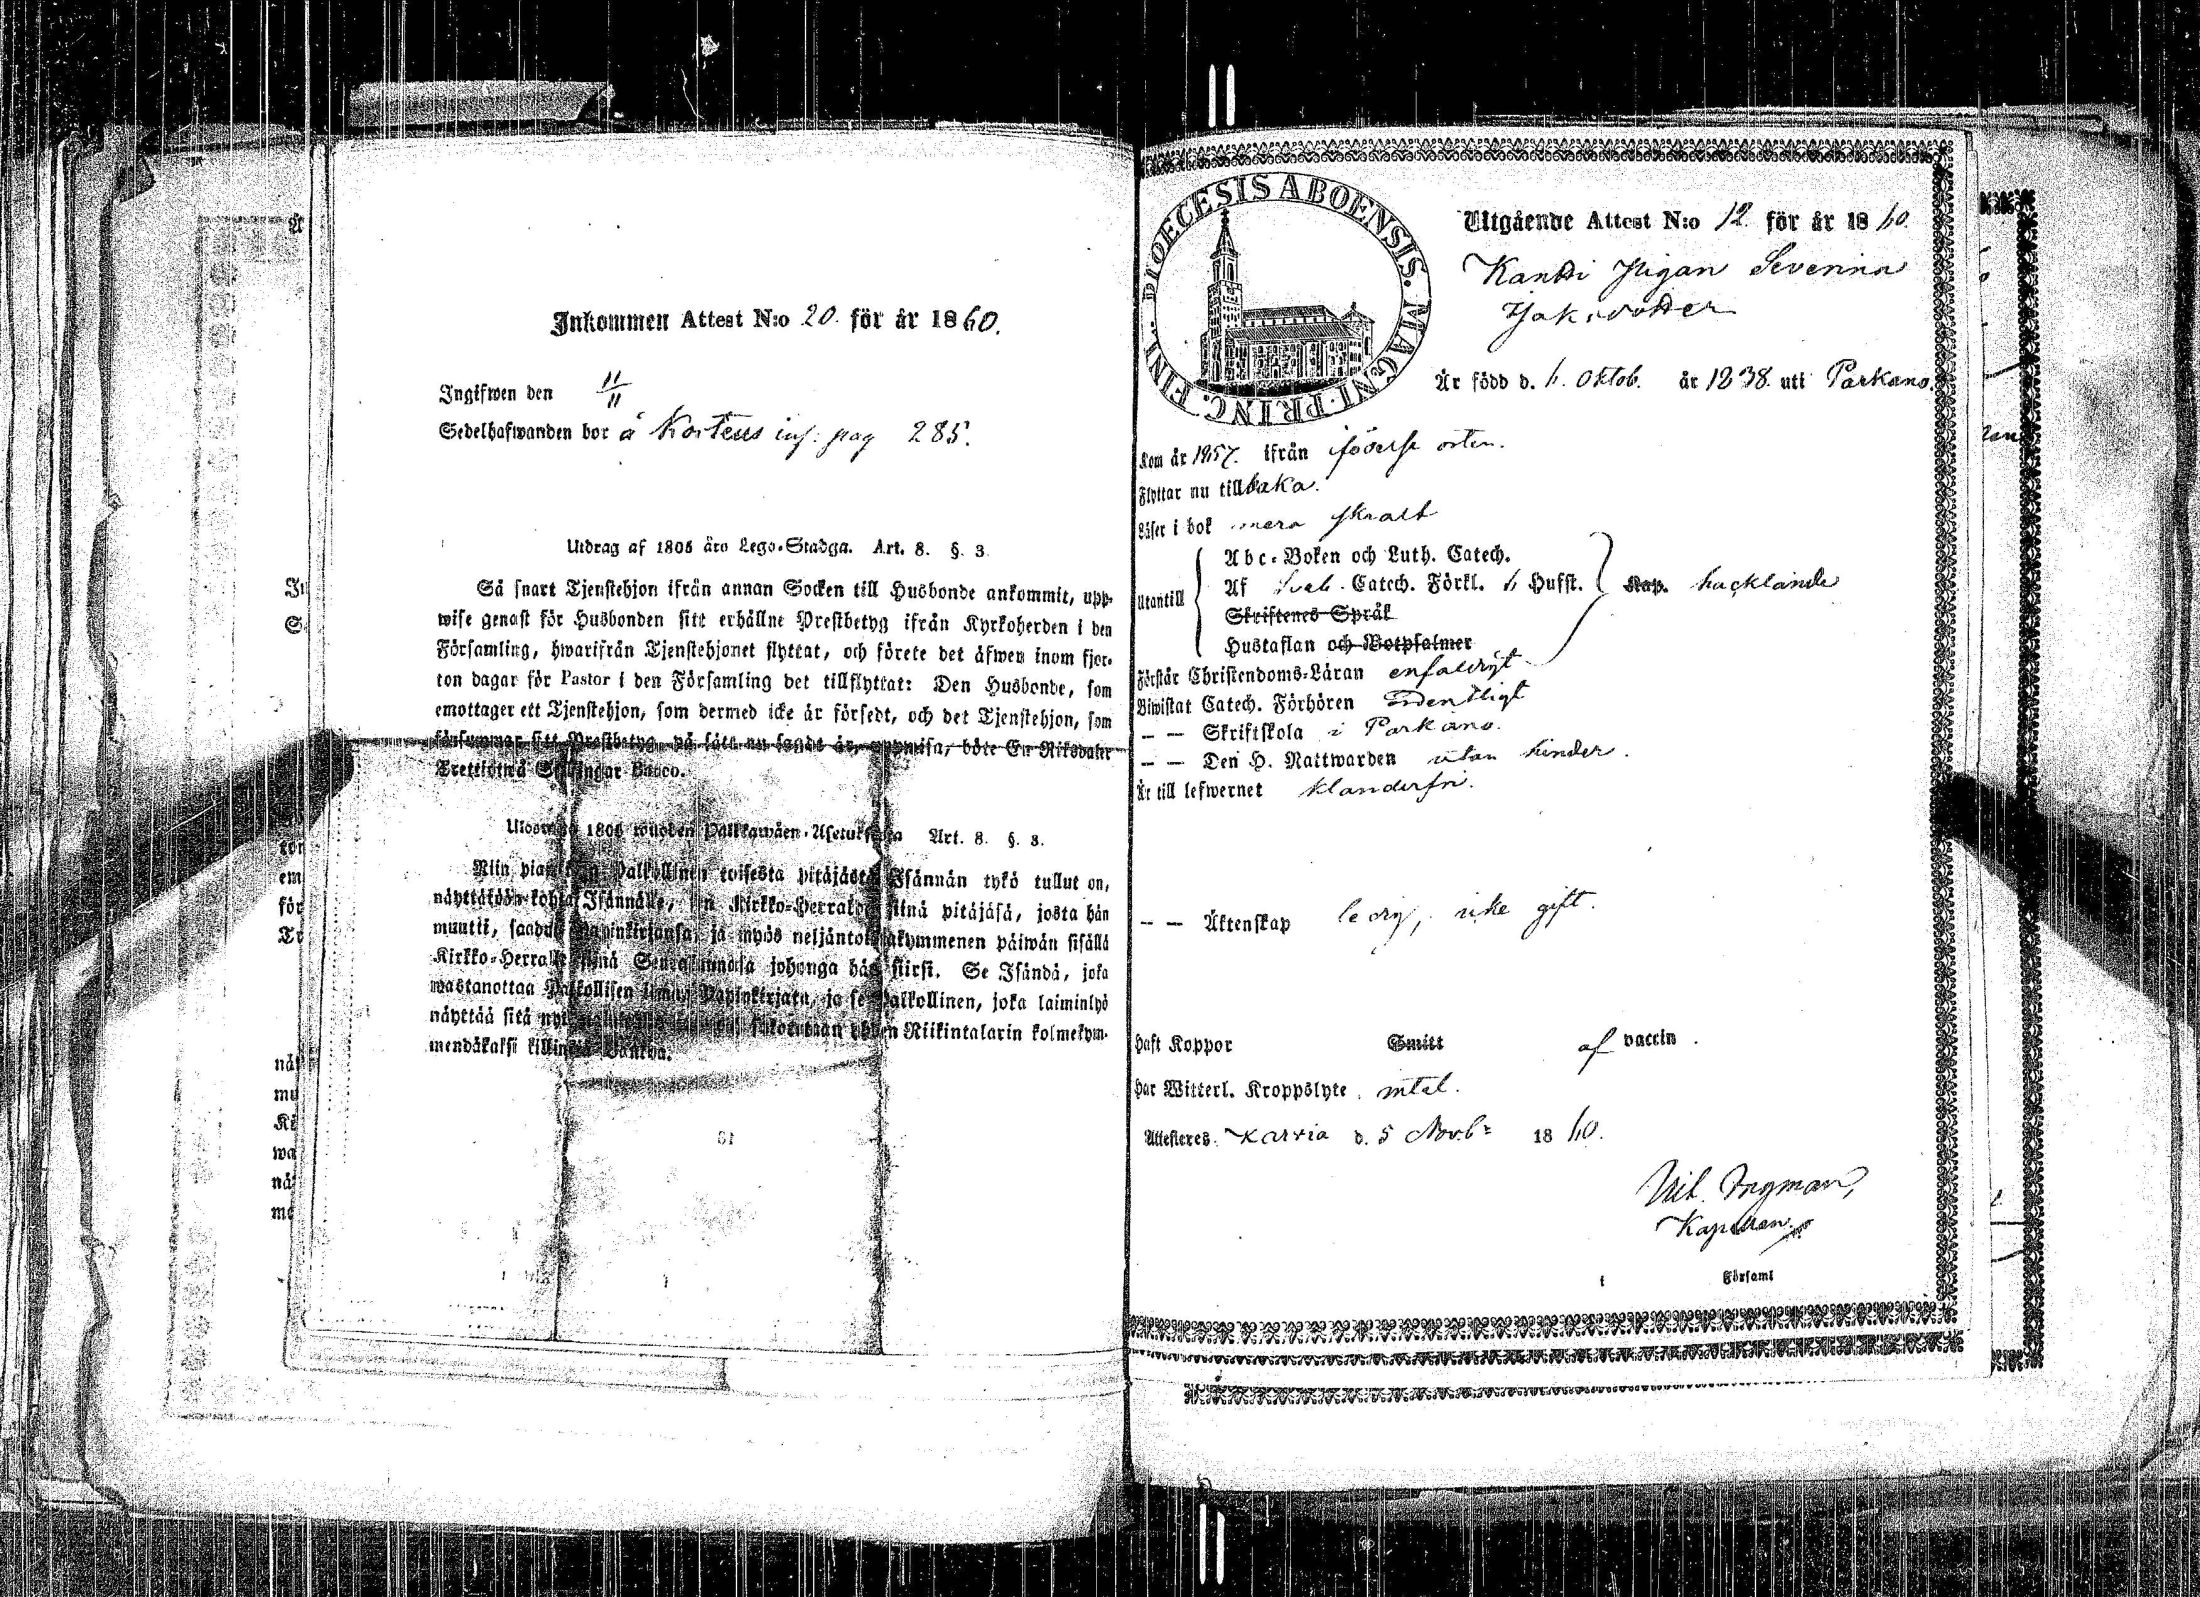 Inkommen Attest N:o 20. för år 1860.
Ingifwen den 11/11
Sedelhafwanden bor å Korteus inf: pag 285.
Utdrag af 1805 års Lego-Stadga. Art. 8. §. 3.
Så snart Tjenstehjon ifrån annan Socken till Husbonde ankommit, upp-
wise genast för Husbonden sitt erhållne Prestbetyg ifrån Kyrkoherden i den
Församling, hwarifrån Tjenstehjonet flyttat, och förete det äfwen inom fjor-
ton dagar för Pastor i den Församling det tillflyttat: Den Husbonde, som
emottager ett Tjenstehjon, som dermed icke är försedt, och det Tjenstehjon, som
försummar sitt Prestbetyg, på sätt nu sagdt är, uppwisa, böte En Riksdaler
Trettiotwå Skillingar Banco.
1805 wuoden Palkkawäen-Asetuksesta Art. 8. §. 3.
Niin pian kuin Palkollinen toisesta pitäjästä Isännän tykö tullut on,
näyttäköön kohta Isännälle, sen Kirkko-Herralda siinä pitäjäsä, josta hän
muutti, saadun Papinkirjansa, ja myös neljäntoistakymmenen päiwän sisällä
Kirkko-Herralle siinä Seurakunnasa johonga hän siirsi. Se Isändä, joka
wastanottaa Palkollisen ilman Papinkirjata, ja se Palkollinen, joka laiminlyö
näyttää sitä yhden Riikintalarin kolmekym-
mendäkaksi killingiä Bankoa.
DIOECESIS ABOENSIS. MAGNI PRINC. FINL.
Utgående Attest N:o 12. för år 1860.
Kantti Pigan Severina
Jaksdotter
Är född d. 6. Oktob. år 1838. uti Parkano.
Kom år 1857. ifrån födelse orten.
Flyttar nu tillbaka.
Läser i bok mera skralt
Abc-Boken och Luth. Catech.
Utantill Af Sveb. Catech. Förkl. 6 Hufst. Kap. hacklande
Skriftenes Språk
Hustaflan och Botpsalmer
Förstår Christendoms-Läran enfaldigt
Biwistat Catech. Förhören ordentligt
— — Skriftskola i Parkano.
— — Den H. Nattwarden utan hinder.
Är till lefwernet klanderfri.
— — Äktenskap ledig, icke gift.
Haft Koppor Smitt af vaccin.
Har Witterl. Kroppslyte intet.
Attesteres. Karvia d. 5 Novb: 1860.
Ingman,
Kapellan.
i Församl